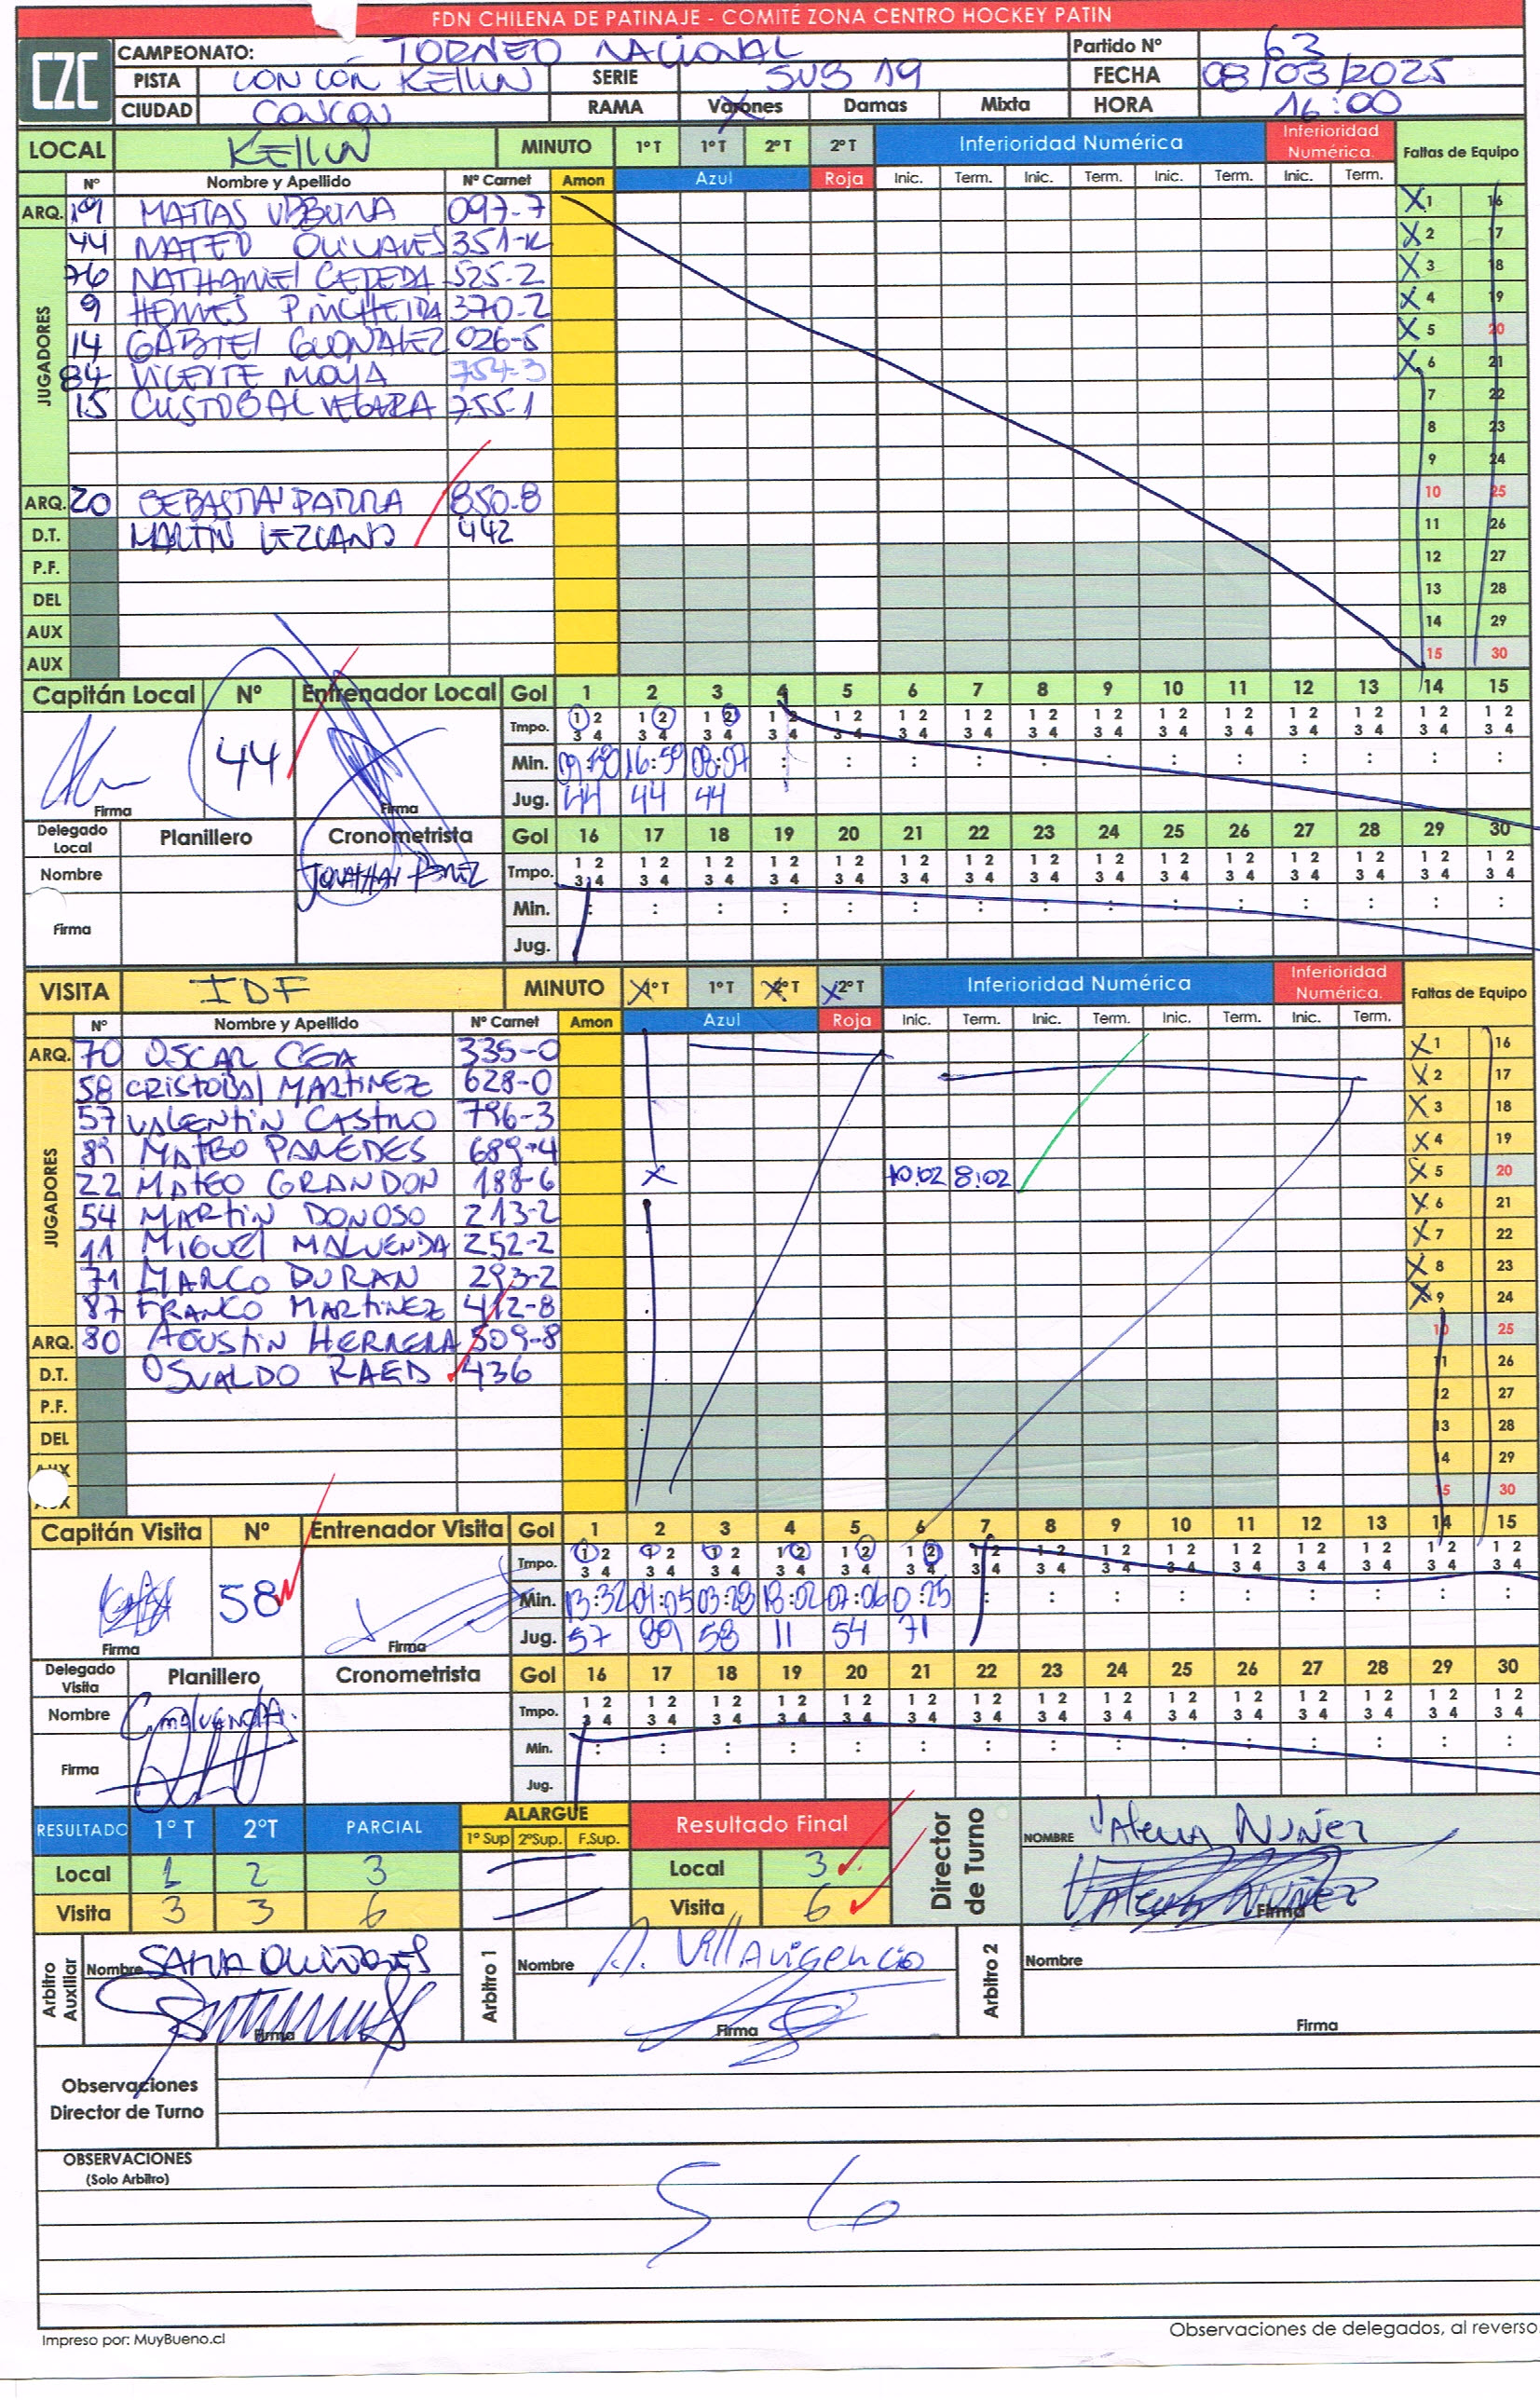 FDN CHILENA DE PATINAJE - COMITÉ ZONA CENTRO HOCKEY PATIN
CZC
CAMPEONATO: TORNEO NACIONAL Partido Nº 63
PISTA CON CÓN KELLUN SERIE SUB 19 FECHA 08/03/2025
CIUDAD CONCON RAMA Varones Damas Mixta HORA 16:00
LOCAL KELLUN MINUTO 1º T 1º T 2º T 2º T Inferioridad Numérica Inferioridad Numérica. Faltas de Equipo
Nº Nombre y Apellido Nº Carnet Amon Azul Roja Inic. Term. Inic. Term. Inic. Term. Inic. Term.
ARQ. 19 MATIAS URBINA 097-7 X 1 16
JUGADORES
44 MATEO OLIVARES 351-K X 2 17
76 NATHANIEL CEPEDA 525-2 X 3 18
9 HERMES PINCHEIRA 370-2 X 4 19
14 GABRIEL GONZALEZ 026-5 X 5 20
84 VICENTE MOYA 754-3 X 6 21
15 CRISTOBAL VEGARA 755-1 7 22
8 23
9 24
ARQ. 20 SEBASTIAN PARRA 850-8 10 25
D.T. MARTIN LEZCANO 442 11 26
P.F. 12 27
DEL 13 28
AUX 14 29
AUX 15 30
Capitán Local Nº Entrenador Local Gol 1 2 3 4 5 6 7 8 9 10 11 12 13 14 15
Tmpo. 1 2 1 2 1 2 1 2 1 2 1 2 1 2 1 2 1 2 1 2 1 2 1 2 1 2 1 2 1 2
3 4 3 4 3 4 3 4 3 4 3 4 3 4 3 4 3 4 3 4 3 4 3 4 3 4 3 4 3 4
44 Min. 16:59 08:07 : : : : : : : : : : : :
Firma Firma Jug. 44 44 44
Delegado Local Planillero Cronometrista Gol 16 17 18 19 20 21 22 23 24 25 26 27 28 29 30
Nombre JONATHAN PEREZ Tmpo. 1 2 1 2 1 2 1 2 1 2 1 2 1 2 1 2 1 2 1 2 1 2 1 2 1 2 1 2 1 2
3 4 3 4 3 4 3 4 3 4 3 4 3 4 3 4 3 4 3 4 3 4 3 4 3 4 3 4 3 4
Min. : : : : : : : : : : : : : : :
Firma Jug.
VISITA IDF MINUTO X 1º T 1º T X 2º T X 2º T Inferioridad Numérica Inferioridad Numérica. Faltas de Equipo
Nº Nombre y Apellido Nº Carnet Amon Azul Roja Inic. Term. Inic. Term. Inic. Term. Inic. Term.
ARQ. 70 OSCAR CEA 335-0 X 1 16
JUGADORES
58 CRISTOBAL MARTINEZ 628-0 X 2 17
57 VALENTIN CASTRO 796-3 X 3 18
89 MATEO PAREDES 689-4 X 4 19
22 MATEO GRANDON 188-6 X 10:02 8:02 X 5 20
54 MARTIN DONOSO 213-2 X 6 21
11 MIGUEL MALUENDA 252-2 X 7 22
71 MARCO DURAN 293-2 X 8 23
87 FRANCO MARTINEZ 412-8 X 9 24
ARQ. 80 AGUSTIN HERRERA 509-8 10 25
D.T. OSVALDO RAED 436 11 26
P.F. 12 27
DEL 13 28
AUX 14 29
AUX 15 30
Capitán Visita Nº Entrenador Visita Gol 1 2 3 4 5 6 7 8 9 10 11 12 13 14 15
Tmpo. 1 2 1 2 1 2 1 2 1 2 1 2 1 2 1 2 1 2 1 2 1 2 1 2 1 2 1 2 1 2
3 4 3 4 3 4 3 4 3 4 3 4 3 4 3 4 3 4 3 4 3 4 3 4 3 4 3 4 3 4
58 Min. 13:32 01:05 03:28 18:02 07:06 0:25 : : : : : : : : :
Firma Firma Jug. 57 89 58 11 54 71
Delegado Visita Planillero Cronometrista Gol 16 17 18 19 20 21 22 23 24 25 26 27 28 29 30
Nombre C. Maluenda. Tmpo. 1 2 1 2 1 2 1 2 1 2 1 2 1 2 1 2 1 2 1 2 1 2 1 2 1 2 1 2 1 2
3 4 3 4 3 4 3 4 3 4 3 4 3 4 3 4 3 4 3 4 3 4 3 4 3 4 3 4 3 4
Min. : : : : : : : : : : : : : : :
Firma Jug.
RESULTADO 1º T 2º T PARCIAL ALARGUE Resultado Final Director de Turno NOMBRE Valeria Nuñez
1º Sup 2ºSup. F.Sup.
Local 1 2 3 Local 3
Visita 3 3 6 Visita 6 Valeria Nuñez Firma
Arbitro Auxiliar Nombre Arbitro 1 Nombre Villavicencio Arbitro 2 Nombre
Firma Firma Firma
Observaciones
Director de Turno
OBSERVACIONES
(Solo Arbitro)
Impreso por: MuyBueno.cl
Observaciones de delegados, al reverso